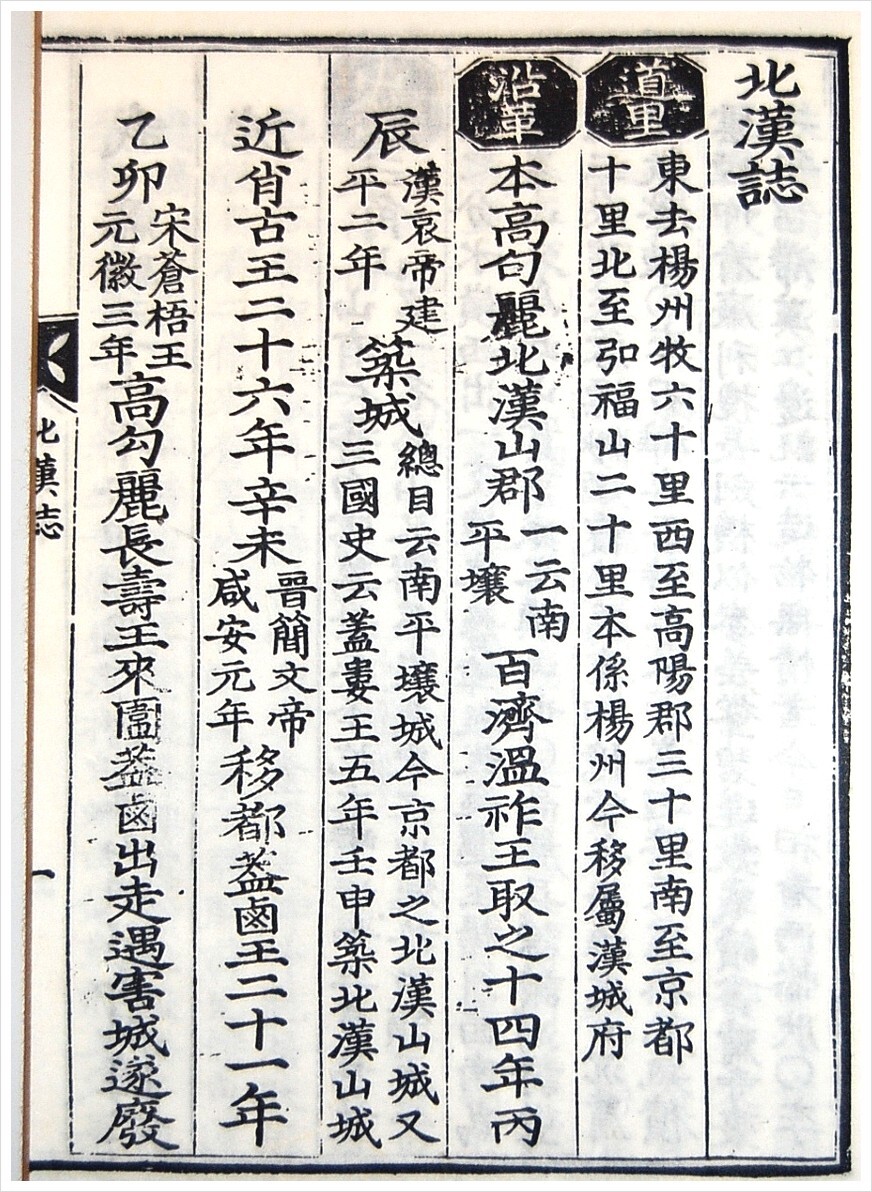 北漢誌
道里
東去楊州牧六十里西至高陽郡三十里南至京都
十里北至弘福山二十里本係楊州今移屬漢城府
沿革
本高句麗北漢山郡
一云南
平壤
百濟溫祚王取之十四年丙
辰
漢哀帝建
平二年
築城
總目云南平壤城今京都之北漢山城又
三國史云蓋婁王五年壬申築北漢山城
近肖古王二十六年辛未
晉簡文帝
咸安元年
移都蓋鹵王二十一年
乙卯
宋蒼梧王
元徽三年
高勾麗長壽王來圍蓋鹵出走遇害城遂廢
北漢誌
一